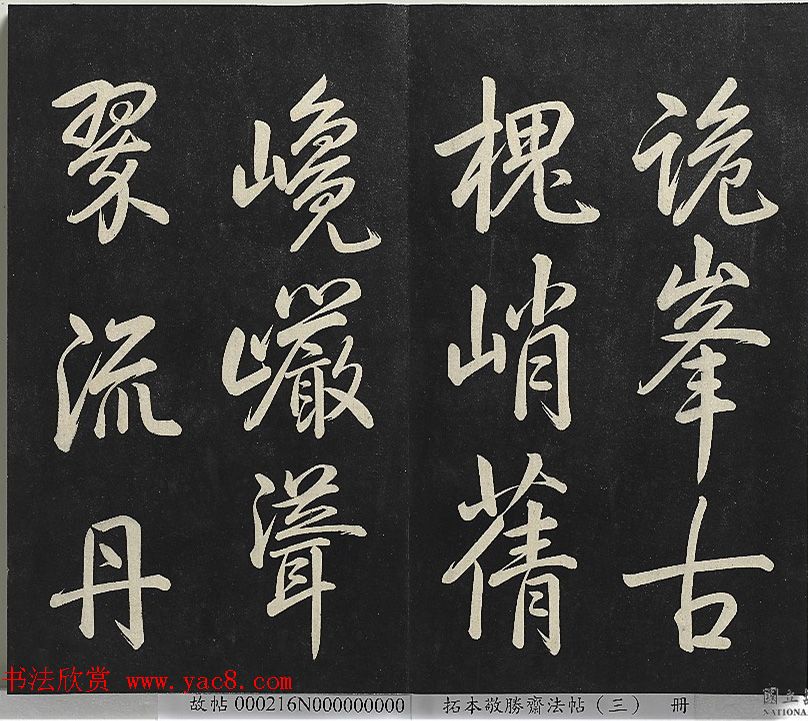 詭峯古
槐峭蒨
巉巖聳
翠流丹
书法欣赏 www.yac8.com
故帖 000216N000000000 拓本敬勝齋法帖（三） 册
國立
NATIONA